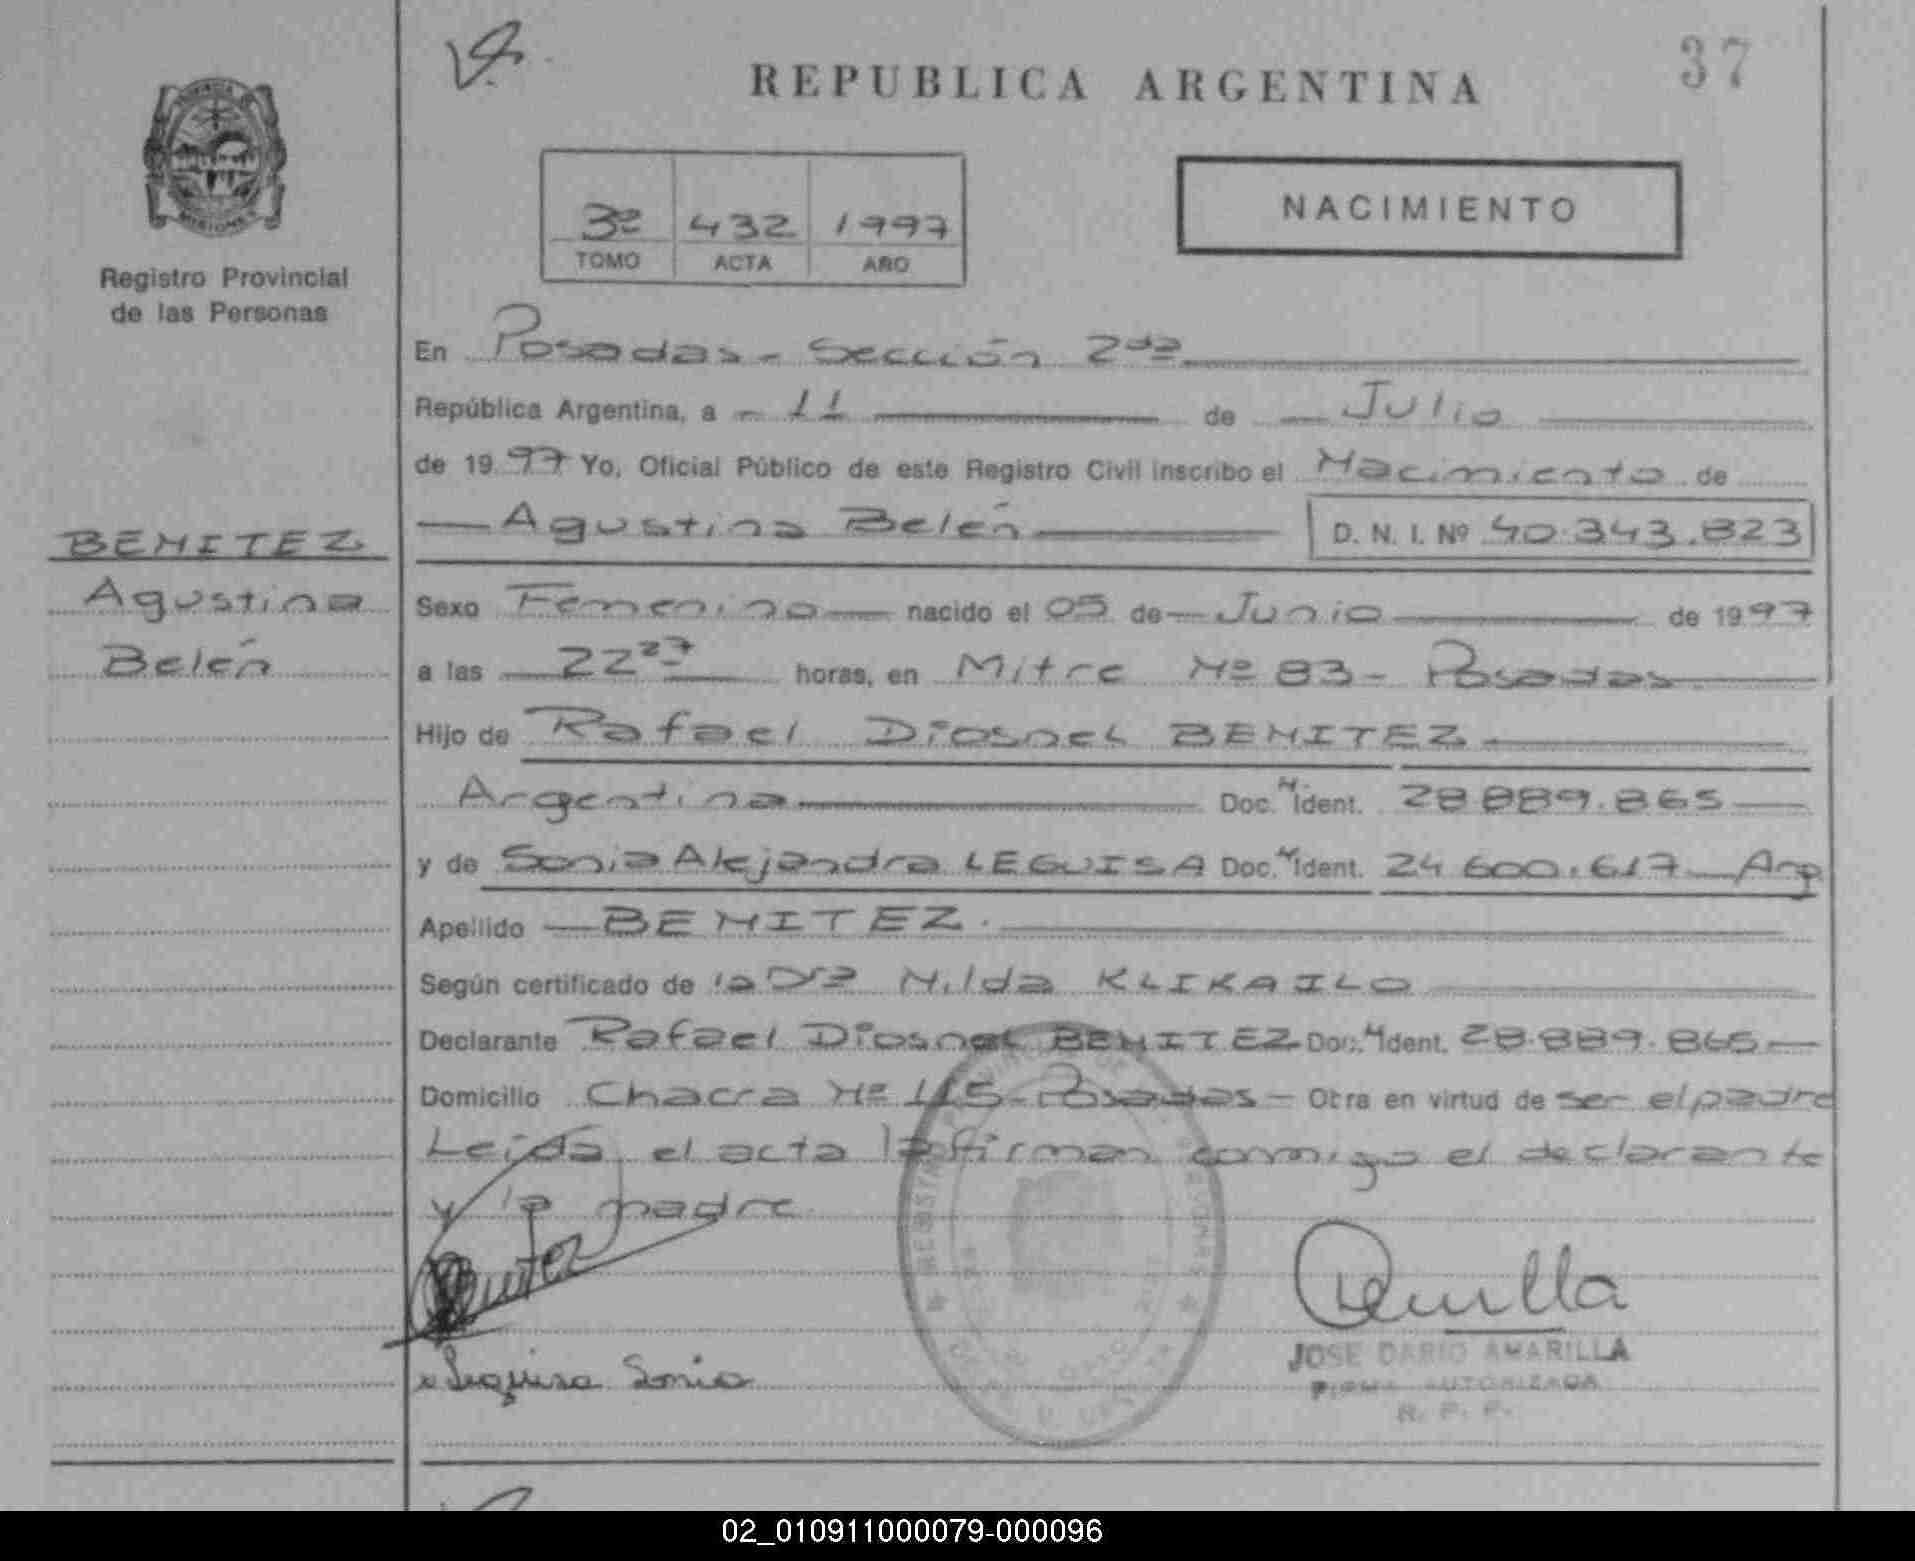 37
REPUBLICA ARGENTINA
3º 432 1997
TOMO ACTA AÑO
NACIMIENTO
Registro Provincial
de las Personas
En Posadas - Sección 2da
República Argentina, a - 11 de Julio
de 1997 Yo, Oficial Público de este Registro Civil inscribo el Nacimiento de
Agustina Belén D. N. I. Nº 40.343.823
BENITEZ
Agustina
Belén
Sexo Femenino nacido el 05 de Junio de 1997
a las 22 27 horas, en Mitre Nº 83 - Posadas
Hijo de Rafael Diosnel BENITEZ
Argentina Doc. N. Ident. 28.889.865
y de Sonia Alejandra LEGUISA Doc. N. Ident. 24.600.617 - Arg
Apellido BENITEZ.
Según certificado de la Dra Nilda KLIKAILO
Declarante Rafael Diosnel BENITEZ Doc. N. Ident. 28.889.865
Domicilio Chacra Nº 115 - Posadas - Obra en virtud de ser el padre
Leida el acta la firman conmigo el declarante
y la madre
Leguisa Sonia
JOSE DARIO AMARILLA
FIRMA AUTORIZADA
R. P. P.
02_010911000079-000096